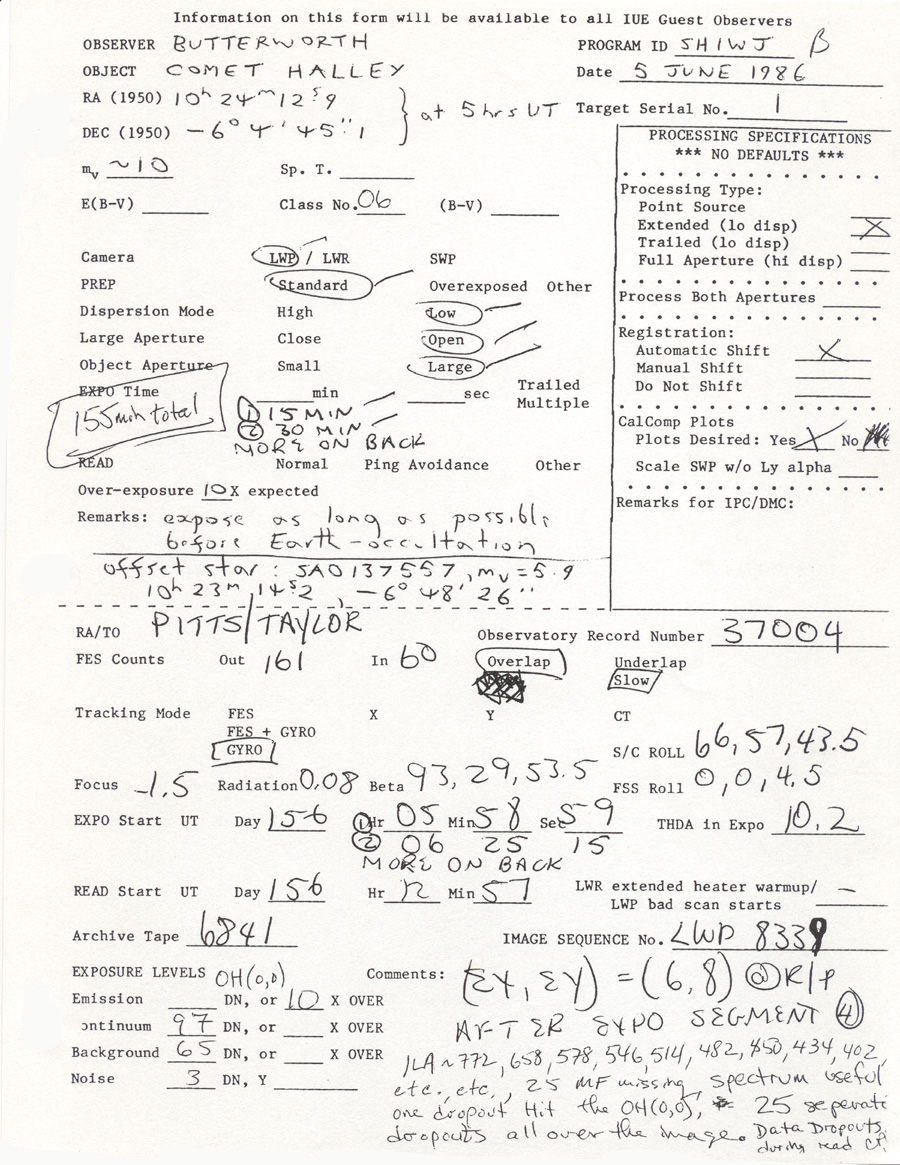 Information on this form will be available to all IUE Guest Observers
OBSERVER BUTTERWORTH PROGRAM ID SHIWJ β
OBJECT COMET HALLEY Date 5 JUNE 1986
RA (1950) 10h 24m 12s9 at 5hrs UT Target Serial No. 1
DEC (1950) -6° 4' 45"1
PROCESSING SPECIFICATIONS
*** NO DEFAULTS ***
mv ~10 Sp. T.
E(B-V) Class No. 06 (B-V)
Processing Type:
Point Source
Extended (lo disp) X
Trailed (lo disp)
Full Aperture (hi disp)
Camera LWP / LWR SWP
PREP Standard Overexposed Other
Process Both Apertures
Dispersion Mode High Low
Large Aperture Close Open
Object Aperture Small Large
Registration:
Automatic Shift X
Manual Shift
Do Not Shift
EXPO Time min sec Trailed
Multiple
155min total
① 15 MIN
② 30 MIN
MORE ON BACK
CalComp Plots
Plots Desired: Yes X No
Scale SWP w/o Ly alpha
READ Normal Ping Avoidance Other
Over-exposure 10 X expected
Remarks for IPC/DMC:
Remarks: expose as long as possible
before Earth-occultation
offset star: SAO137557, mv=5.9
10h 23m 14s2, -6° 48' 26"
RA/TO PITTS/TAYLOR Observatory Record Number 37004
FES Counts Out 161 In 60 Overlap Underlap
Slow
Tracking Mode FES X Y CT
FES + GYRO
GYRO
S/C ROLL 66,57,43.5
Focus -1.5 Radiation 0.08 Beta 93,29,53.5 FSS Roll 0,0,4.5
EXPO Start UT Day 156 ① Hr 05 Min 58 Sec 59 THDA in Expo 10.2
② 06 25 15
MORE ON BACK
READ Start UT Day 156 Hr 12 Min 57 LWR extended heater warmup/ —
LWP bad scan starts
Archive Tape 6841 IMAGE SEQUENCE No. LWP 8339
EXPOSURE LEVELS OH(0,0) Comments: (ΣX, ΣY) = (6,8) @ R/P
Emission DN, or 10 X OVER
AFTER EXPO SEGMENT ④
ontinuum 97 DN, or X OVER
Background 65 DN, or X OVER
JLA~772,658,578,546,514,482,450,434,402,
Noise 3 DN, Y
etc., etc., 25 MF missing, spectrum useful
one dropout Hit the OH(0,0), 25 seperate
dropouts all over the image. Data Dropouts
during read